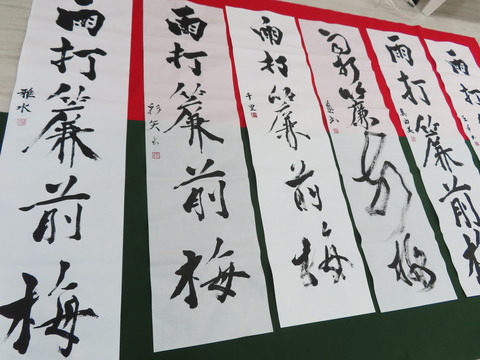 雨打簾前梅
雅水
雨打簾前梅
雨打簾前梅
千里
雨打簾前梅
雨打簾前梅
雨打簾前梅